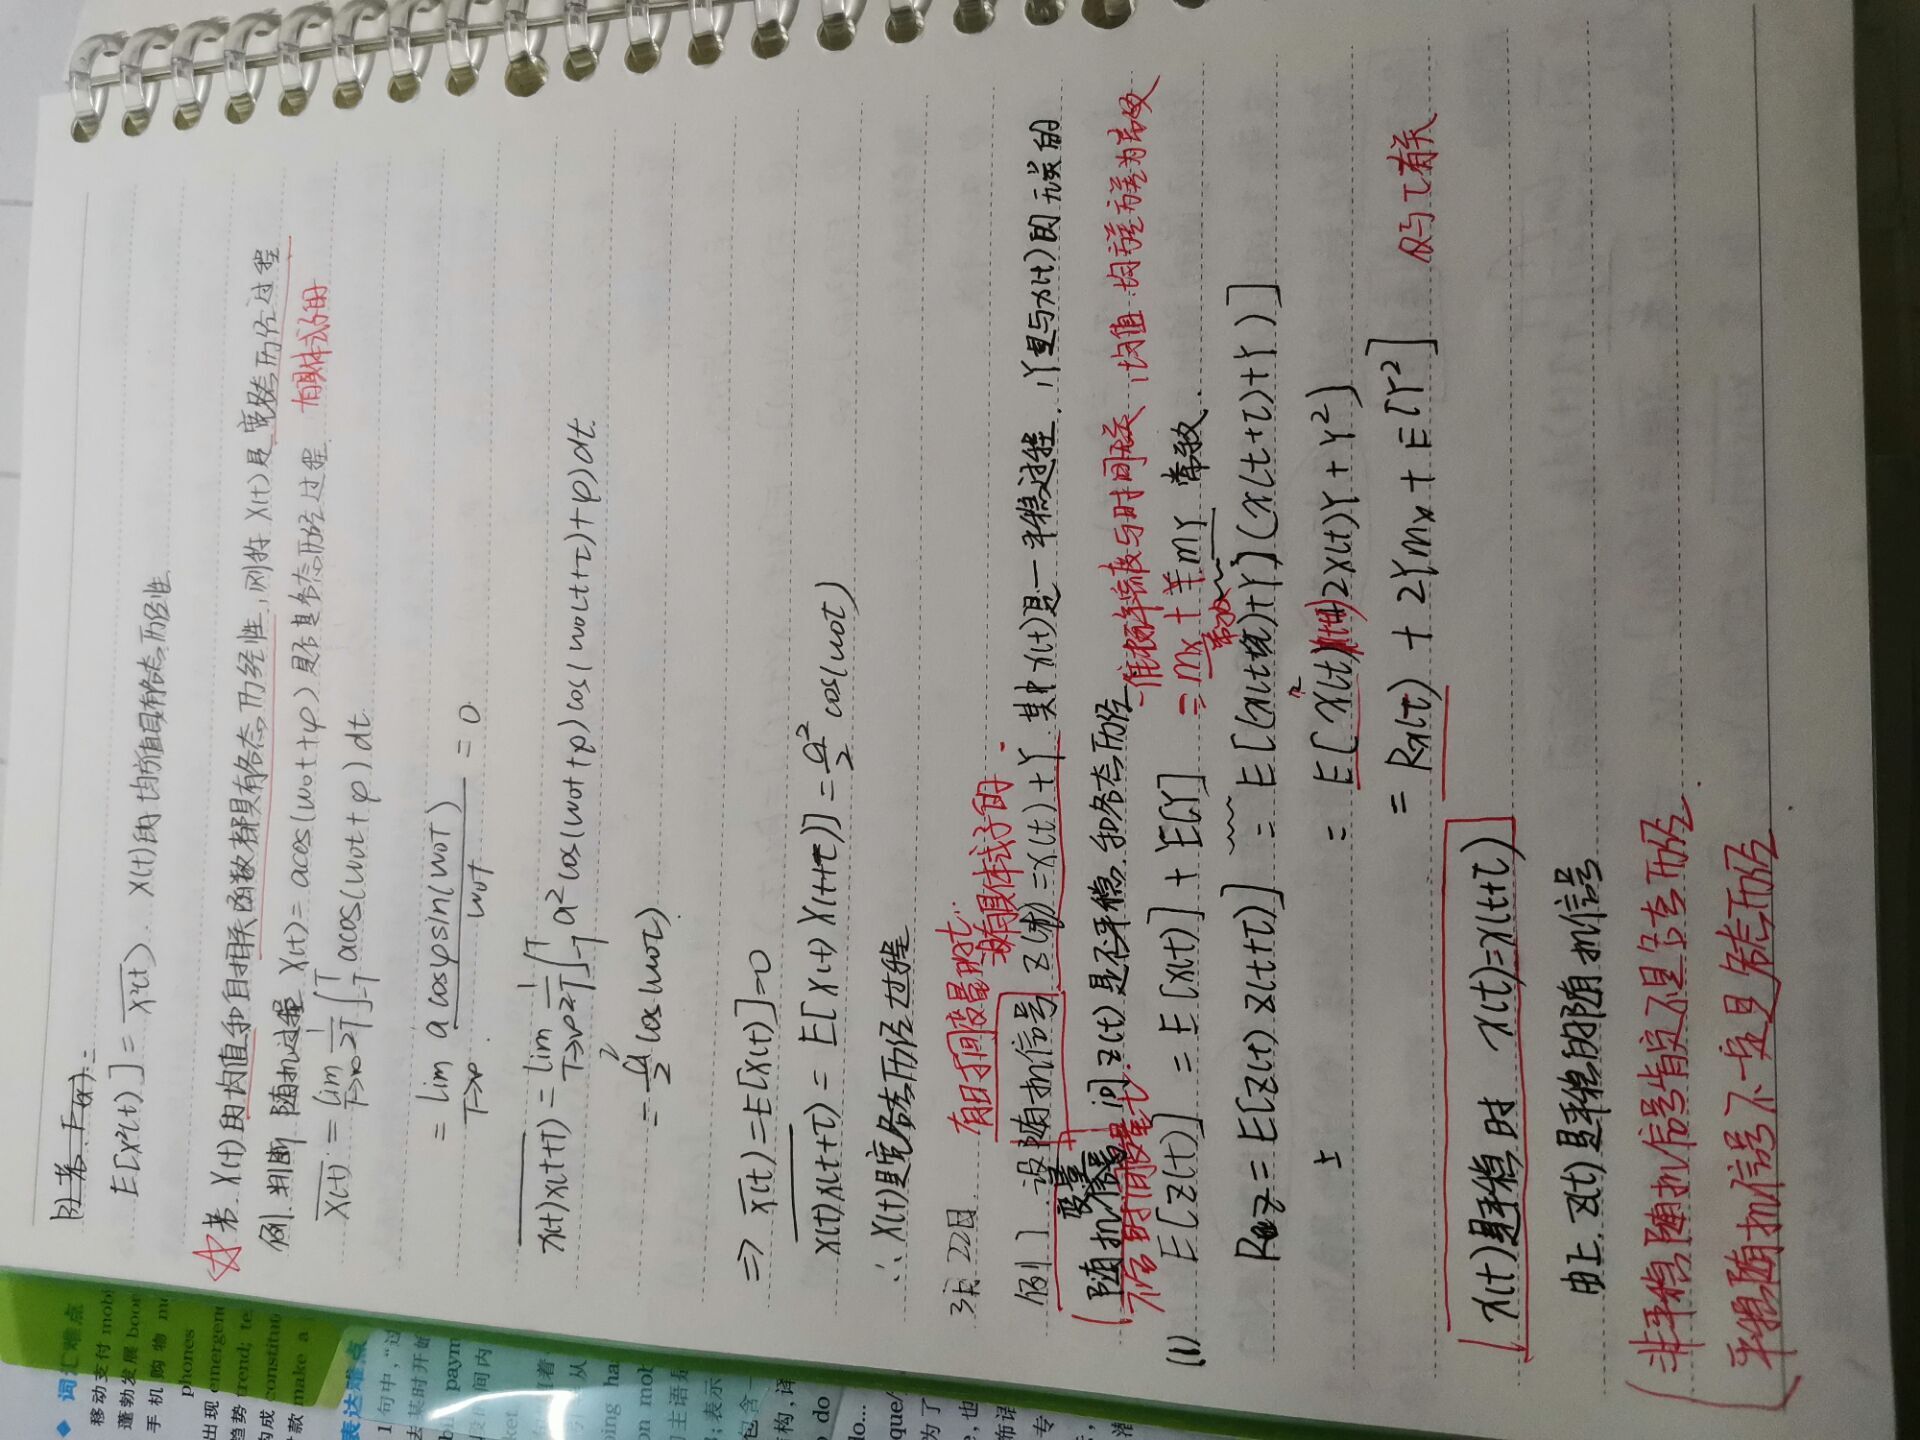 词汇难点
移动支付 mobi
蓬勃发展 boom
手机购物 mo
phones
出现 emergen
趋势 trend; te
构成 constitut
款 make a
表达难点
1 句中，“过
去某时开始
bil paym
段时间内
ket
(3) 若 F(x) =
E[X²(t)] = \overline{X²(t)} . X(t)的均方值具有各态历经性
☆ 若. X(t)的均值和自相关函数都具有各态历经性, 则称 X(t)是宽各态历经过程
例. 判断 随机过程 X(t) = acos(ω₀t+φ) 是否是各态历经过程. 有具体式子的
\overline{X(t)} = lim T→∞ 1/2T ∫_{-T}^{T} acos(ω₀t+φ) dt.
= lim T→∞ a cosφ sin(ω₀T) / ω₀T = 0.
\overline{x(t)x(t+τ)} = lim T→∞ 1/2T ∫_{-T}^{T} a² cos(ω₀t+φ) cos(ω₀(t+τ)+φ) dt.
= a²/2 cos(ω₀τ)
⇒ \overline{x(t)} = E[X(t)] = 0
\overline{x(t)x(t+τ)} = E[X(t) X(t+τ)] = a²/2 cos(ω₀τ)
∴ X(t)是宽各态历经过程
3月22日.
有时间变量的t..
没有具体式子的.
例1. 设随机信号 Z(t) = x(t) + Y. 其中x(t)是一平稳过程. Y是与x(t)的无关的
变量
随机信号 问 Z(t) 是否平稳. 和各态历经
不含时间变量t.
一维概率密度与时间无关, 均值 均方差方差为常数
(1) E[Z(t)] = E[x(t)] + E[Y] = mx + mY 常数.
常数
Rz = E[Z(t) Z(t+τ)] = E[(x(t)+Y)(x(t+τ)+Y)]
= E[x²(t) x(t+τ) + 2x(t)Y + Y²]
= Rx(τ) + 2Ymx + E[Y²] 仅与τ有关
x(t)是平稳时 x(t)=x(t+τ)
由上. Z(t)是平稳的随机信号
非平稳随机信号肯定不是各态历经.
平稳随机信号不一定是各态历经